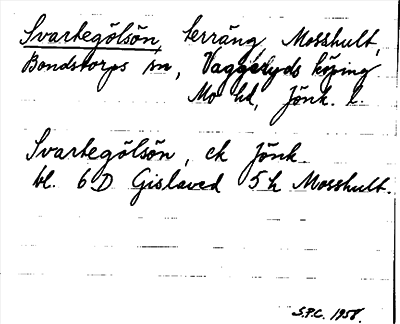 Svartegölsön, terräng, Mosshult,
Bondstorps sn, Vaggeryds köping
Mo hd, Jönk. l.
Svartegölsön, ek Jönk.
bl. 6D Gislaved 5h Mosshult.
S.P.C. 1958.